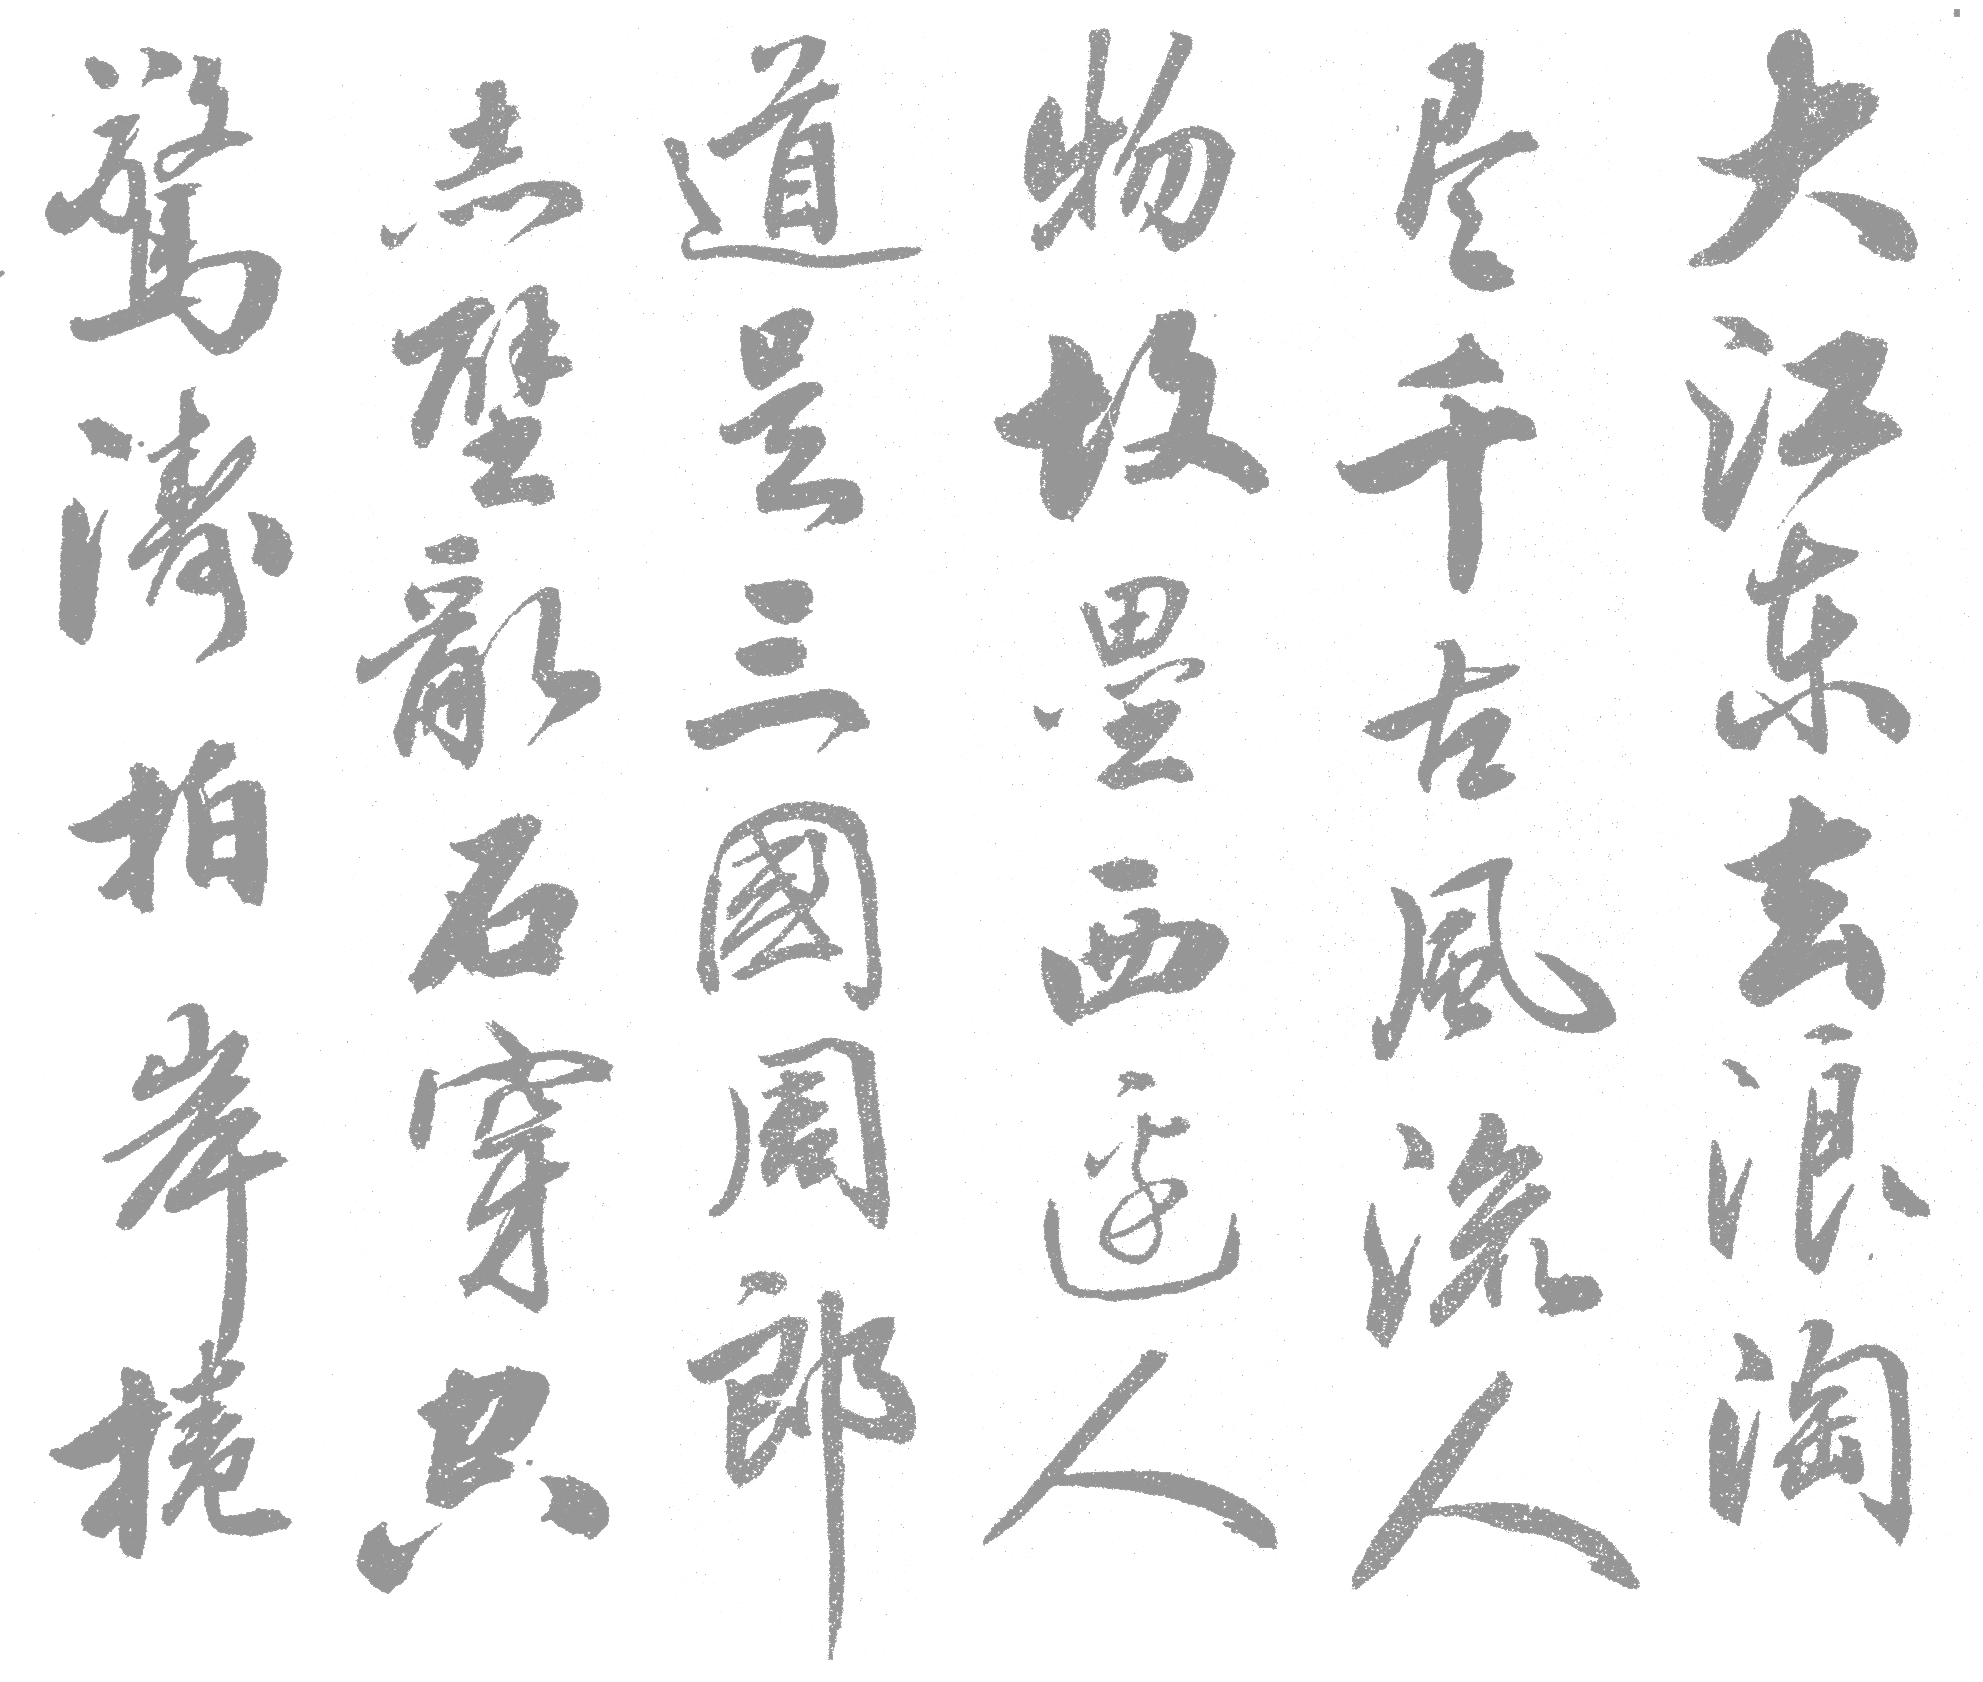 大江东去浪淘
尽千古風流人
物故壘西邊人
道是三國周郎
赤壁亂石穿
驚濤拍岸捲